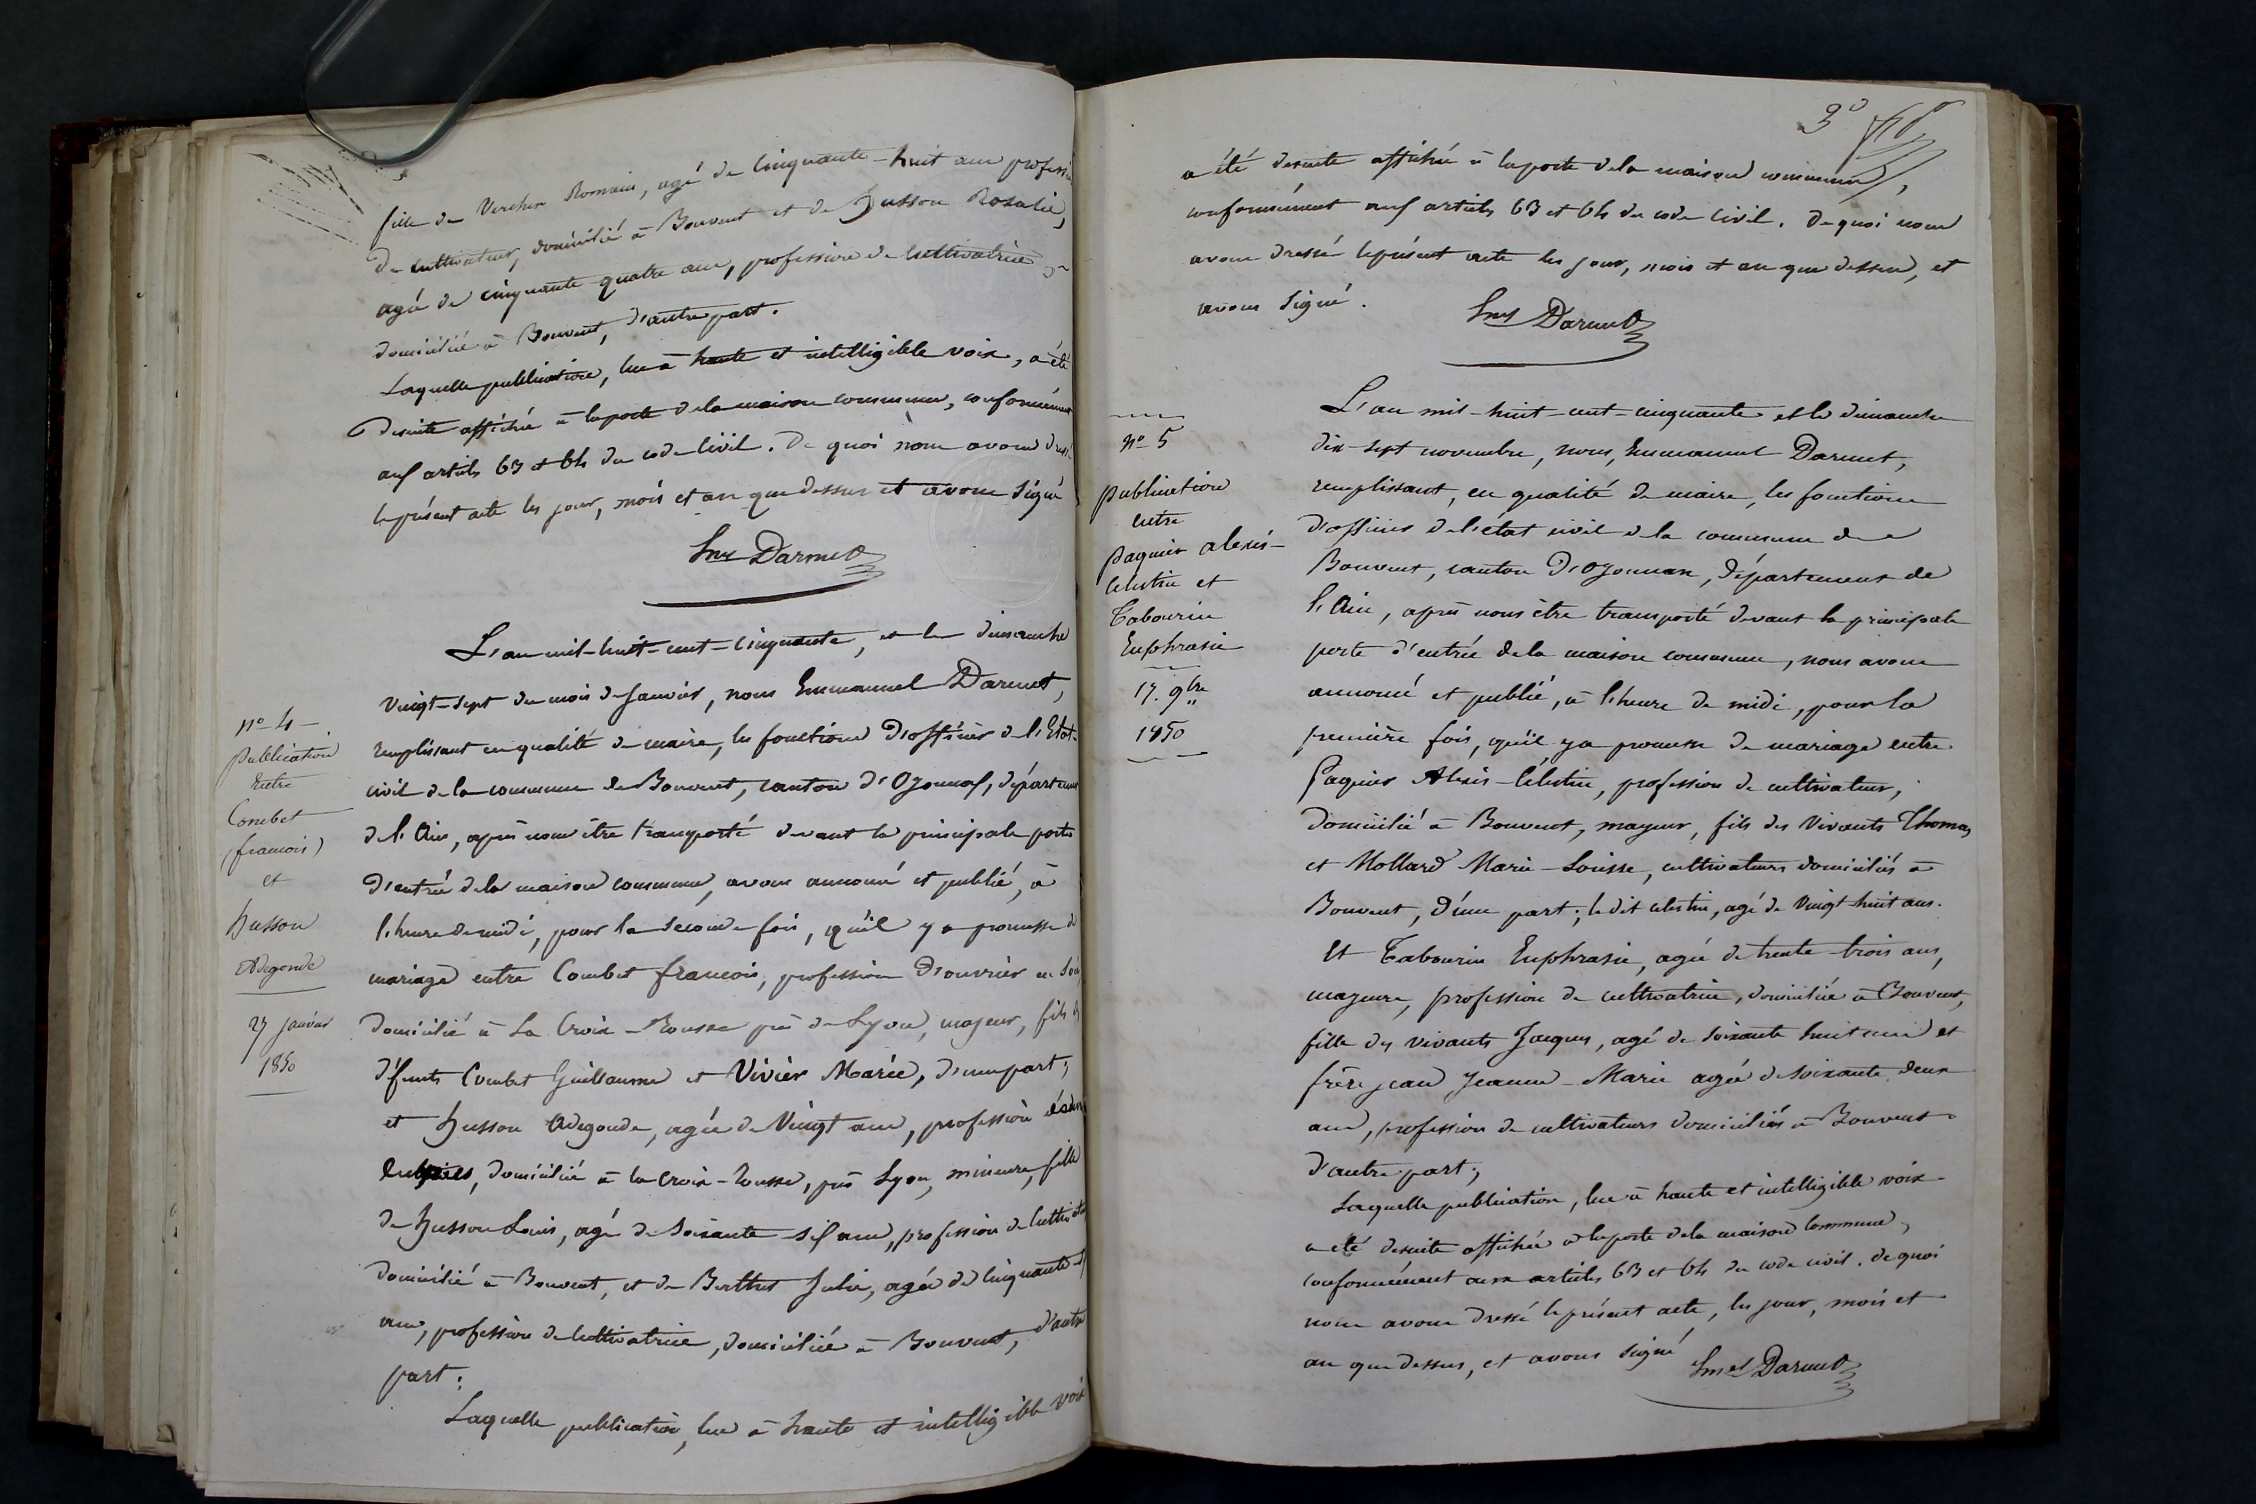 fille de Verchere Romain, agé de cinquante-huit ans profession
de cultivateur, domicilié à Bouvent et de Husson Rosalie,
agée de cinquante quatre ans, profession de cultivatrice
domiciliée à Bouvent, d'autre part.
Laquelle publication, lue à haute et intelligible voix, a été
desuite affichée à la porte de la maison commune, conformément
aux articles 63 et 64 du code civil. De quoi nous avons dressé
le présent acte les jour, mois et an que dessus et avons signé
Em Darmet
N° 4
Publication
Entre
Combet
(francois)
et
Husson
Adegonde
27 janvier
1850
L'an mil-huit-cent-cinquante, et le dimanche
vingt-sept du mois de Janvier, nous Emmanuel Darmet,
remplissant en qualité de maire, les fonctions d'officier de l'Etat-
civil de la commune de Bouvent, canton d'Oyonnax, département
de l'Ain, après nous être transporté devant la principale porte
d'entrée de la maison commune, avons annoncé et publié, à
l'heure de midi, pour la seconde fois, qu'il y a promesse de
mariage entre Combet francois, profession d'ouvrier en soie,
domicilié à La Croix-Rousse près de Lyon, majeur, fils des
défunts Combet Guillaume et Vivier Marie, d'une part;
et Husson Adegonde, agée de Vingt ans, profession
domicilié à la Croix-rousse, près Lyon, mineure, fille
de Husson Louis, agé de soixante-six ans, profession de cultivateur
domicilié à Bouvent, et de Berthet Julie, agée de cinquante
ans, profession de cultivatrice, domiciliée à Bouvent, d'autre
part:
Laquelle publication, lue à haute et intelligible voix
3°
a été desuite affichée à la porte de la maison commune,
conformément aux articles 63 et 64 du code civil. De quoi nous
avons dressé le présent acte les jour, mois et an que dessus, et
avons signé.
Em Darmet
N° 5
Publication
Entre
Paquier alexis-
Célestin et
Tabourin
Euphrasie
17. 9bre
1850
L'an mil-huit-cent-cinquante et le dimanche
dix-sept novembre, nous, Emmanuel Darmet,
remplissant, en qualité de maire, les fonctions
d'officier de l'état civil de la commune de
Bouvent, canton d'oyonnax, département de
l'Ain, après nous être transporté devant la principale
porte d'entrée de la maison commune, nous avons
annoncé et publié, à l'heure de midi, pour la
première fois, qu'il y a promesse de mariage entre
Paquier Alexis-Célestin, profession de cultivateur,
domicilié à Bouvent, mageur, fils des vivants Thomas
et Mollard Marie-Louisse, cultivateurs domiciliés à
Bouvent, d'une part; le dit célestin, agé de vingt-huit ans.
Et Tabourin Euphrasie, agée de trente-trois ans,
mageure, profession de cultivatrice, domiciliée à Bouvent,
fille des vivants Jacques, agé de soixante huit ans et
frèrejean Jeanne-Marie agée de soixante deux
ans, profession de cultivateurs domiciliés à Bouvent
d'autre part;
Laquelle publication, lue à haute et intelligible voix
a été desuite affichée à la porte de la maison commune,
conformément aux articles 63 et 64 du code civil. de quoi
nous avons dressé le présent acte, les jour, mois et
an que dessus, et avons signé
Emel Darmet